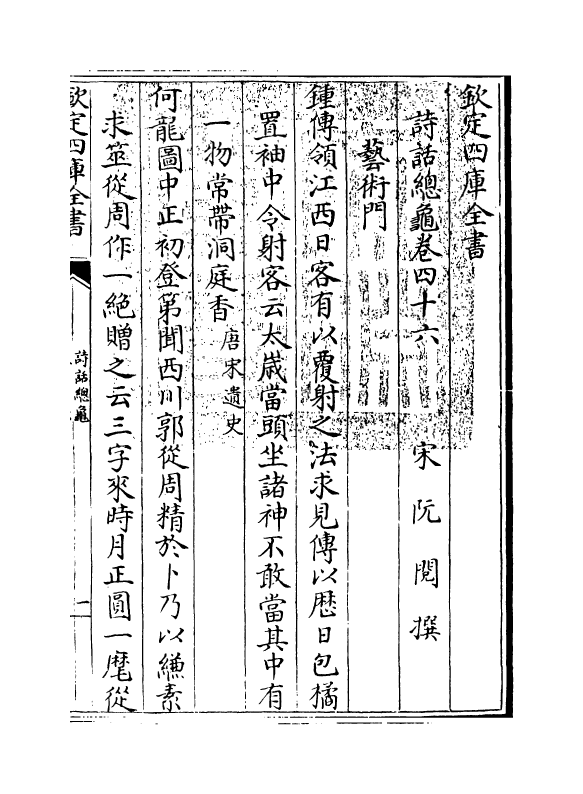 欽定四庫全書
詩話總龜卷四十六　宋 阮閱 撰
藝術門
鍾傳領江西日客有以覆射之法求見傳以歴日包橘
置袖中令射客云太嵗當頭坐諸神不敢當其中有
一物常帶洞庭香唐宋遺史
何龍圖中正初登第聞西川郭從周精於卜乃以縑素
求筮從周作一絶贈之云三字來時月正圓一麾從
欽定四庫全書
詩話總龜
一